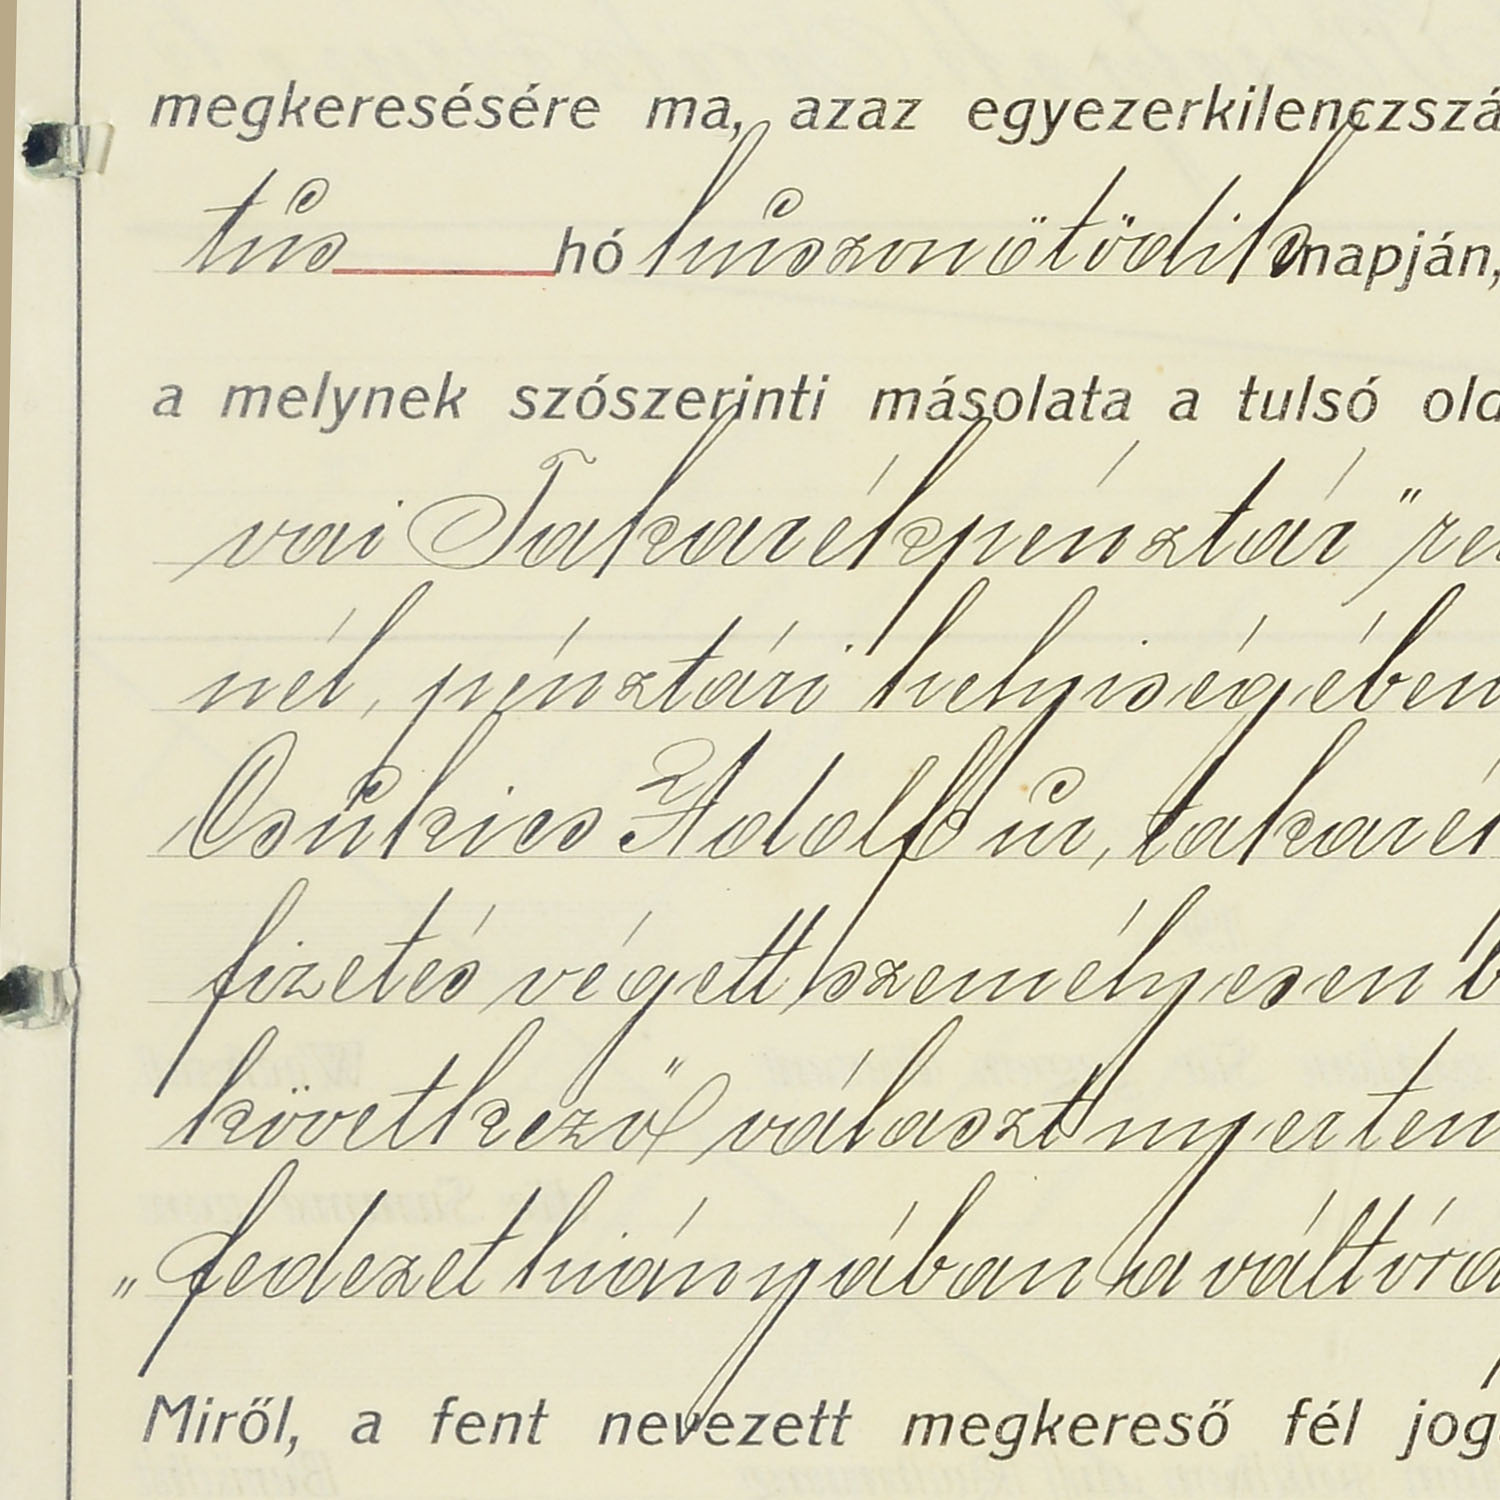 megkeresésére ma, azaz egyezerkilenczszá
tus hó huszonötödik napján,
a melynek szószerinti másolata a tulsó old
vai Takarékpénztár" re
nél, pénztári helyiségében
Csukics Adolf úr, takarék
fizetés végett személyesen b
következő választ nyertem
„fedezet hiányában a váltóra
Miről, a fent nevezett megkereső fél jog